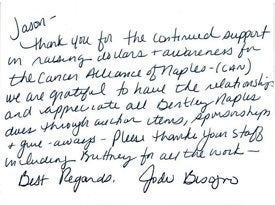 Jason -
Thank you for the continued support
in raising dollars + awareness for
the Cancer Alliance of Naples - (CAN)
we are grateful to have the relationship
and appreciate all Bentley Naples
does through auction items, sponsorships
+ give-aways - Please thank your staff
including Brittney for all the work -
Best Regards, Jode Bisogno